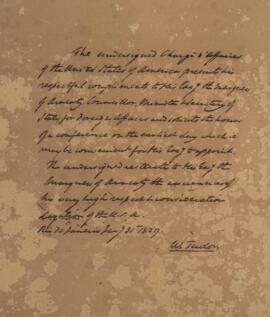 The undersigned Chargé d'Affaires
of the United States of America presents his
respectful compliments to His Exy the Marquess
of Aracaty Councillor, Minister & Secretary of
State for Foreign Affairs and solicits the honor
of a conference on the earliest day which it
may be convenient for His Exy to appoint.
The undersigned reiterates to His Exy the
Marquess of Aracaty the assurance of
his very high respect & consideration
Legation of the U.S.A.
Rio de Janeiro Jany 21 1829.
W. Tudor